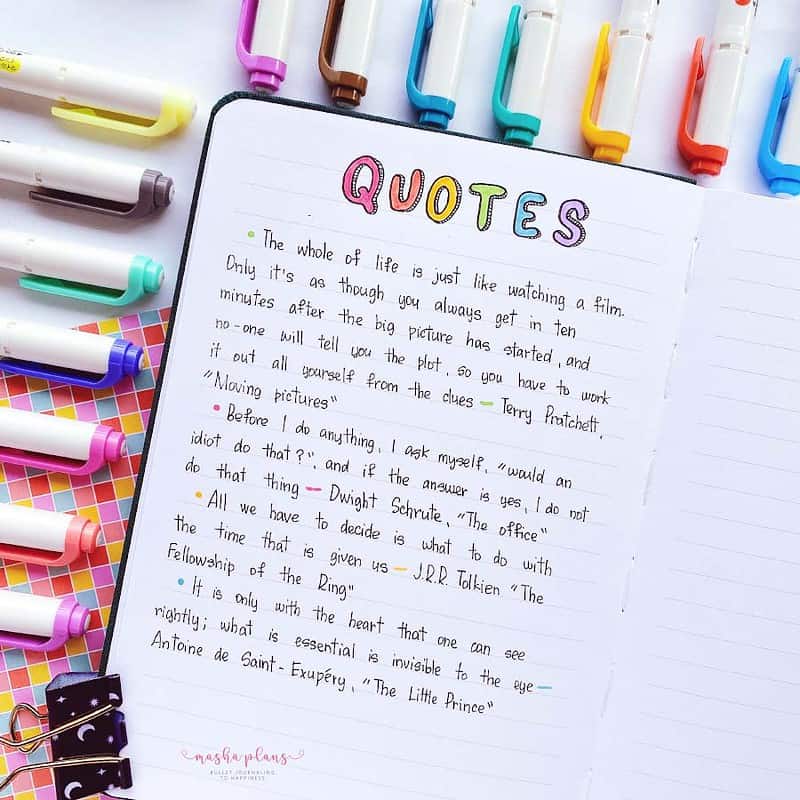 QUOTES
• The whole of life is just like watching a film.
Only it's as though you always get in ten
minutes after the big picture has started, and
no-one will tell you the plot, so you have to work
it out all yourself from the clues — Terry Pratchett,
"Moving pictures"
• Before I do anything, I ask myself, "would an
idiot do that?", and if the answer is yes, I do not
do that thing — Dwight Schrute, "The office"
• All we have to decide is what to do with
the time that is given us — J.R.R. Tolkien "The
Fellowship of the Ring"
• It is only with the heart that one can see
rightly; what is essential is invisible to the eye —
Antoine de Saint-Exupéry, "The Little Prince"
masha plans
BULLET JOURNALING
TO HAPPINESS